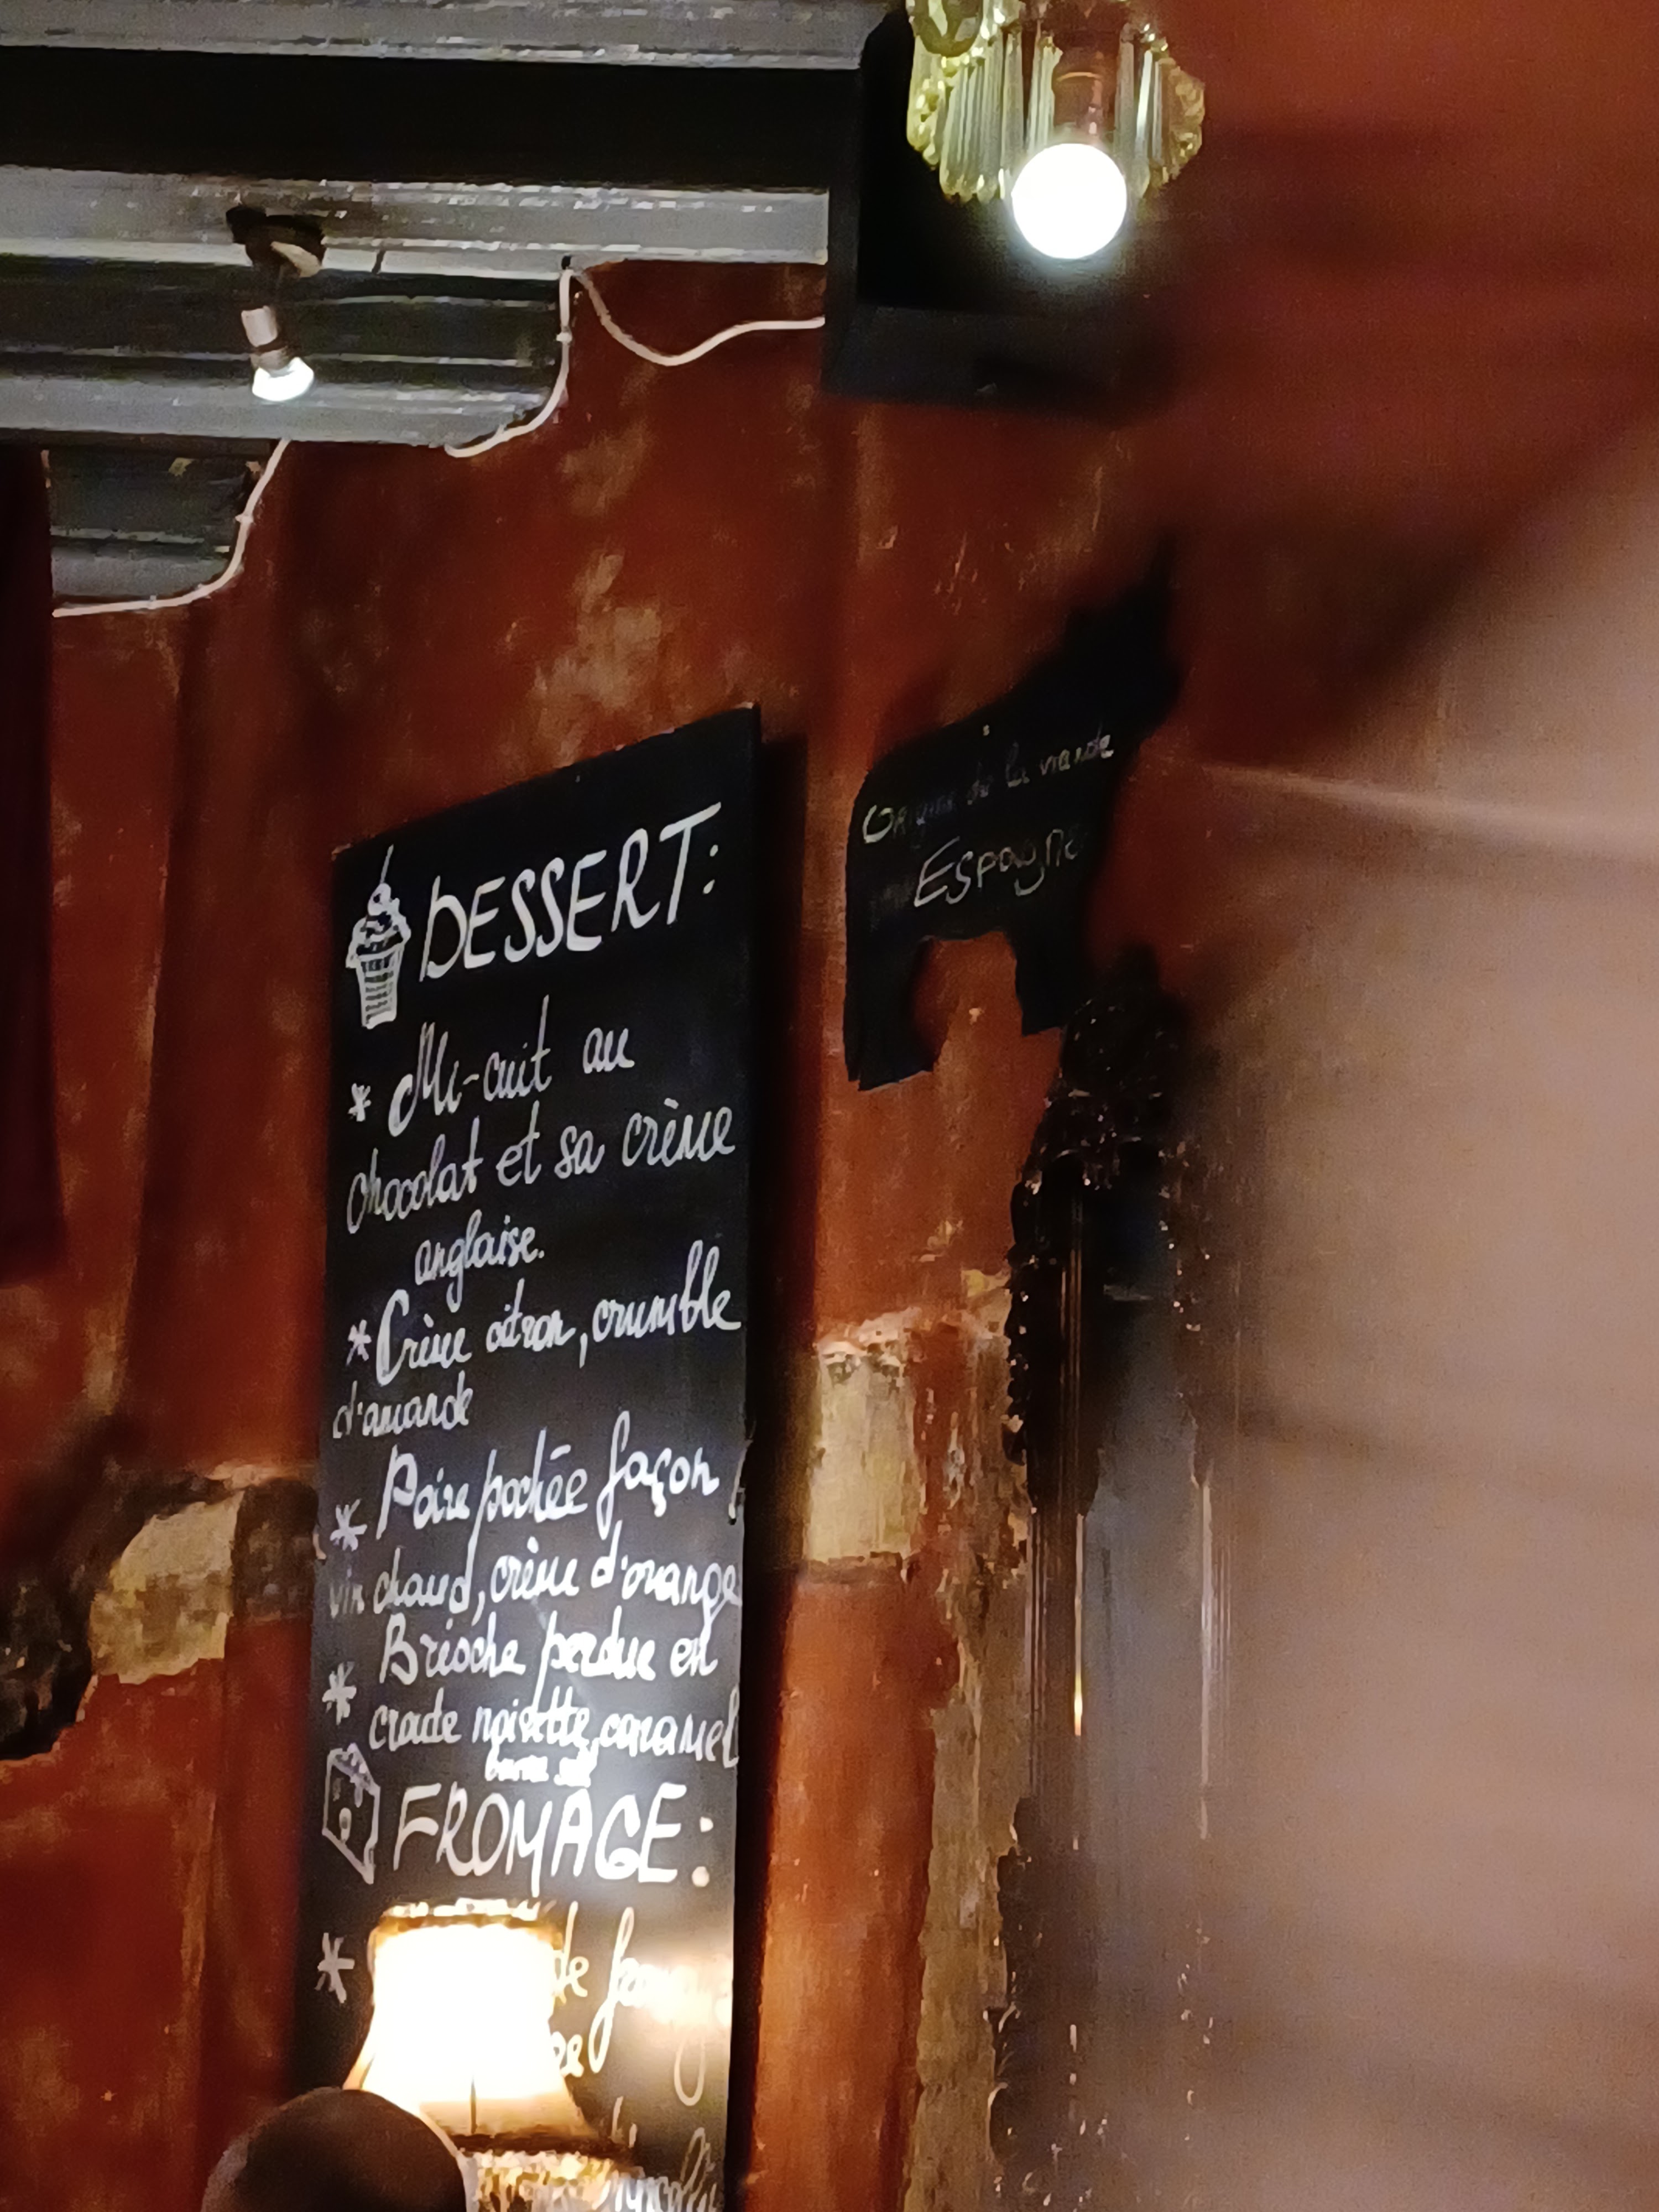 DESSERT:
* Mi-cuit au
chocolat et sa crème
anglaise.
* Crème citron, crumble
d'amande
* Poire pochée façon
vin chaud, crème d'orange
* Brioche perdue en
croute noisette, caramel
FROMAGE:
* de
Origine de la viande
Espagne